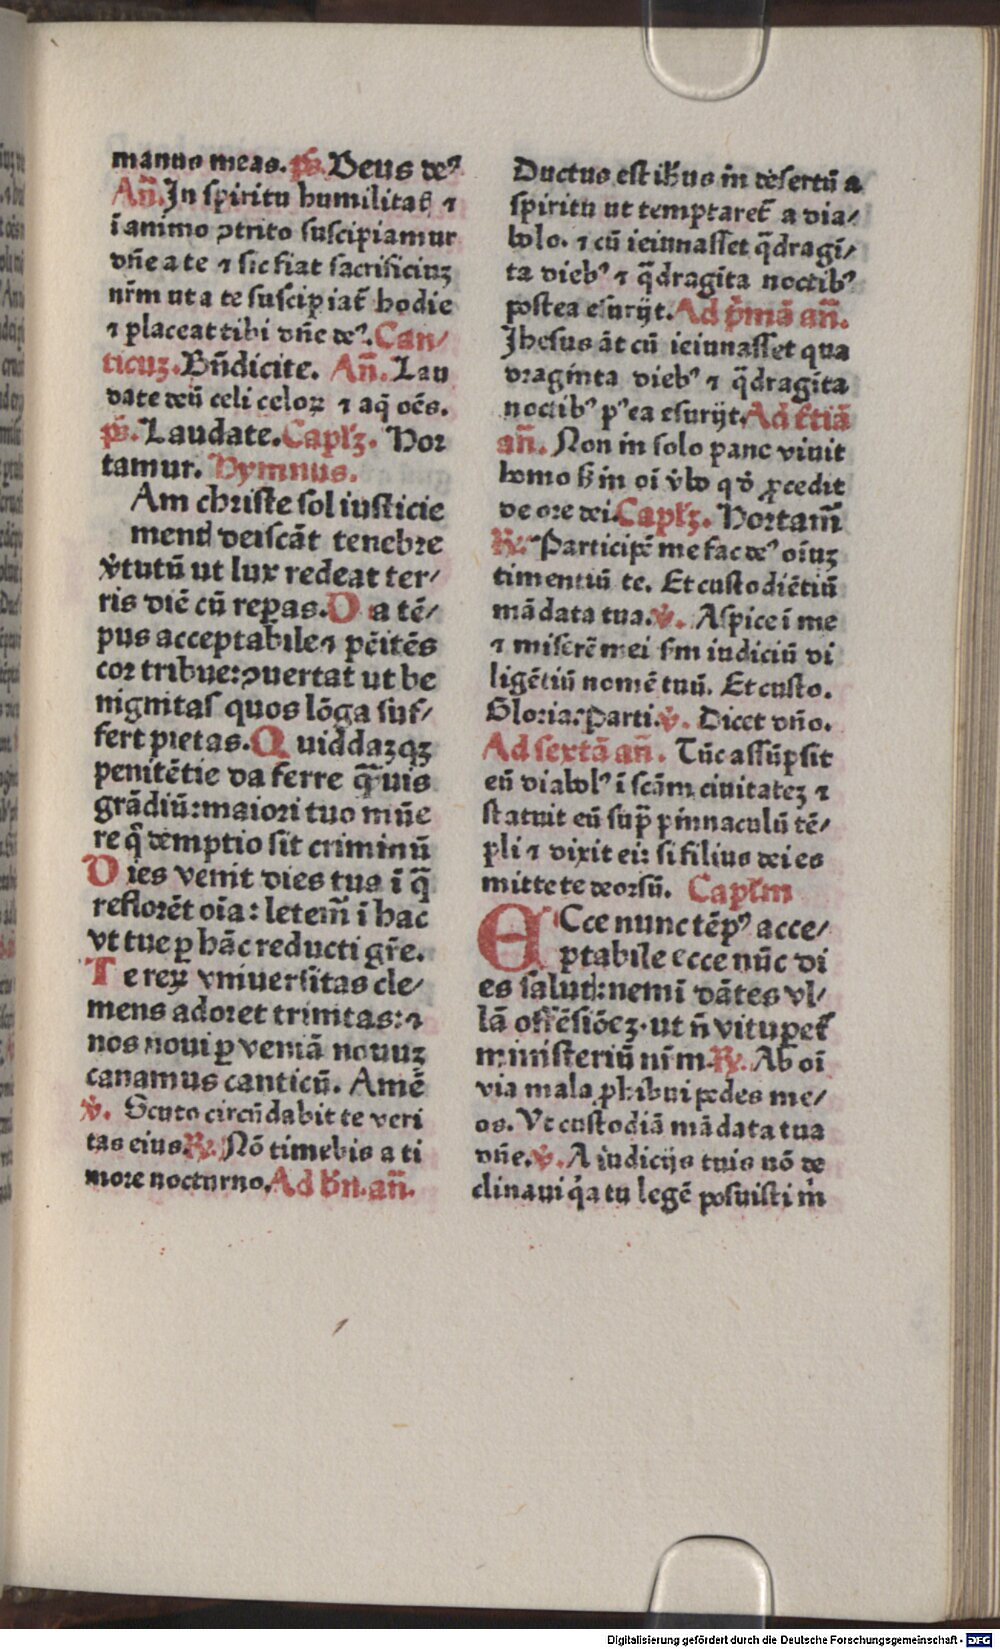 manus meas. ps̄. Deus deꝰ
An̄. In spiritu humilitatꝭ ⁊
ī animo ꝯtrito suscipiamur
dn̄e a te ⁊ sic fiat sacrificiuꝫ
nr̄m ut a te suscipiat̄ hodie
⁊ placeat tibi dn̄e deꝰ. Can⸗
ticuꝫ. Bn̄dicite. An̄. Lau
date deū celi celoꝝ ⁊ aq̄ oēs.
ps̄. Laudate. Capl̄ꝫ. Hor
tamur. Hymnus.
Am christe sol iusticie
mentꝭ deiscāt tenebre
v̓tutū ut lux redeat ter⸗
ris diē cū reꝑas. D a tē⸗
pus acceptabile ⁊ pēitēs
cor tribue: ꝯuertat ut be
nignitas quos lōga suf⸗
fert pietas. Q uiddaꝫqꝫ
penitētie da ferre q̄muis
grādiū: maiori tuo mūe
re q̄ demptio sit criminū
D ies venit dies tua ī q̄
reflorēt oīa: letem̄ ī hac
vt tue ꝑ hāc reducti gr̄e.
T e rex vniuersitas cle⸗
mens adoret trinitas: ⁊
nos noui ꝑ veniā nouuꝫ
canamus canticū. Amē
v̓. Scuto circūdabit te veri
tas eius. ℟. Nō timebis a ti
more nocturno. Ad bn̄. an̄.
Ductus est ih̄us in desertū a
spiritu ut temptaret̄ a dia⸗
bolo. ⁊ cū ieiunasset q̄dragī⸗
ta diebꝰ ⁊ q̄dragīta noctibꝰ
postea esurijt. Ad p̄mā an̄.
Jhesus āt cū ieiunasset qua
draginta diebꝰ ⁊ q̄dragīta
noctibꝰ pꝰea esurijt. Ad t̓tiā
an̄. Non in solo pane viuit
homo s̄ in oī v̓bo qd̓ ꝓcedit
de ore dei. Capl̄ꝫ. Hortam̄
℟. Participē me fac deꝰ oīuꝫ
timentiū te. Et custodiētiū
mādata tua. v̓. Aspice ī me
⁊ miserē mei sm̄ iudiciū di
ligētiū nomē tuū. Et custo.
Gloria. Parti. v̓. Dicet dn̄o.
Ad sextā an̄. Tūc assūpsit
eū diabolꝰ ī scām ciuitateꝫ ⁊
statuit eū sup̄ pinnaculū tē⸗
pli ⁊ dixit ei: si filius dei es
mitte te deorsū. Capl̄m
ECce nunc tēpꝰ acce⸗
ptabile ecce nūc di
es salutꝭ: nemī dātes vl⸗
lā offēsiōeꝫ. ut n̄ vituꝑet̄
ministeriū nr̄m. ℟. Ab oī
via mala ꝓhibui pedes me⸗
os. Vt custodiā mādata tua
dn̄e. v̓. A iudicijs tuis nō de
clinaui q̓a tu legē posuisti m̄
Digitalisierung gefördert durch die Deutsche Forschungsgemeinschaft - DFG